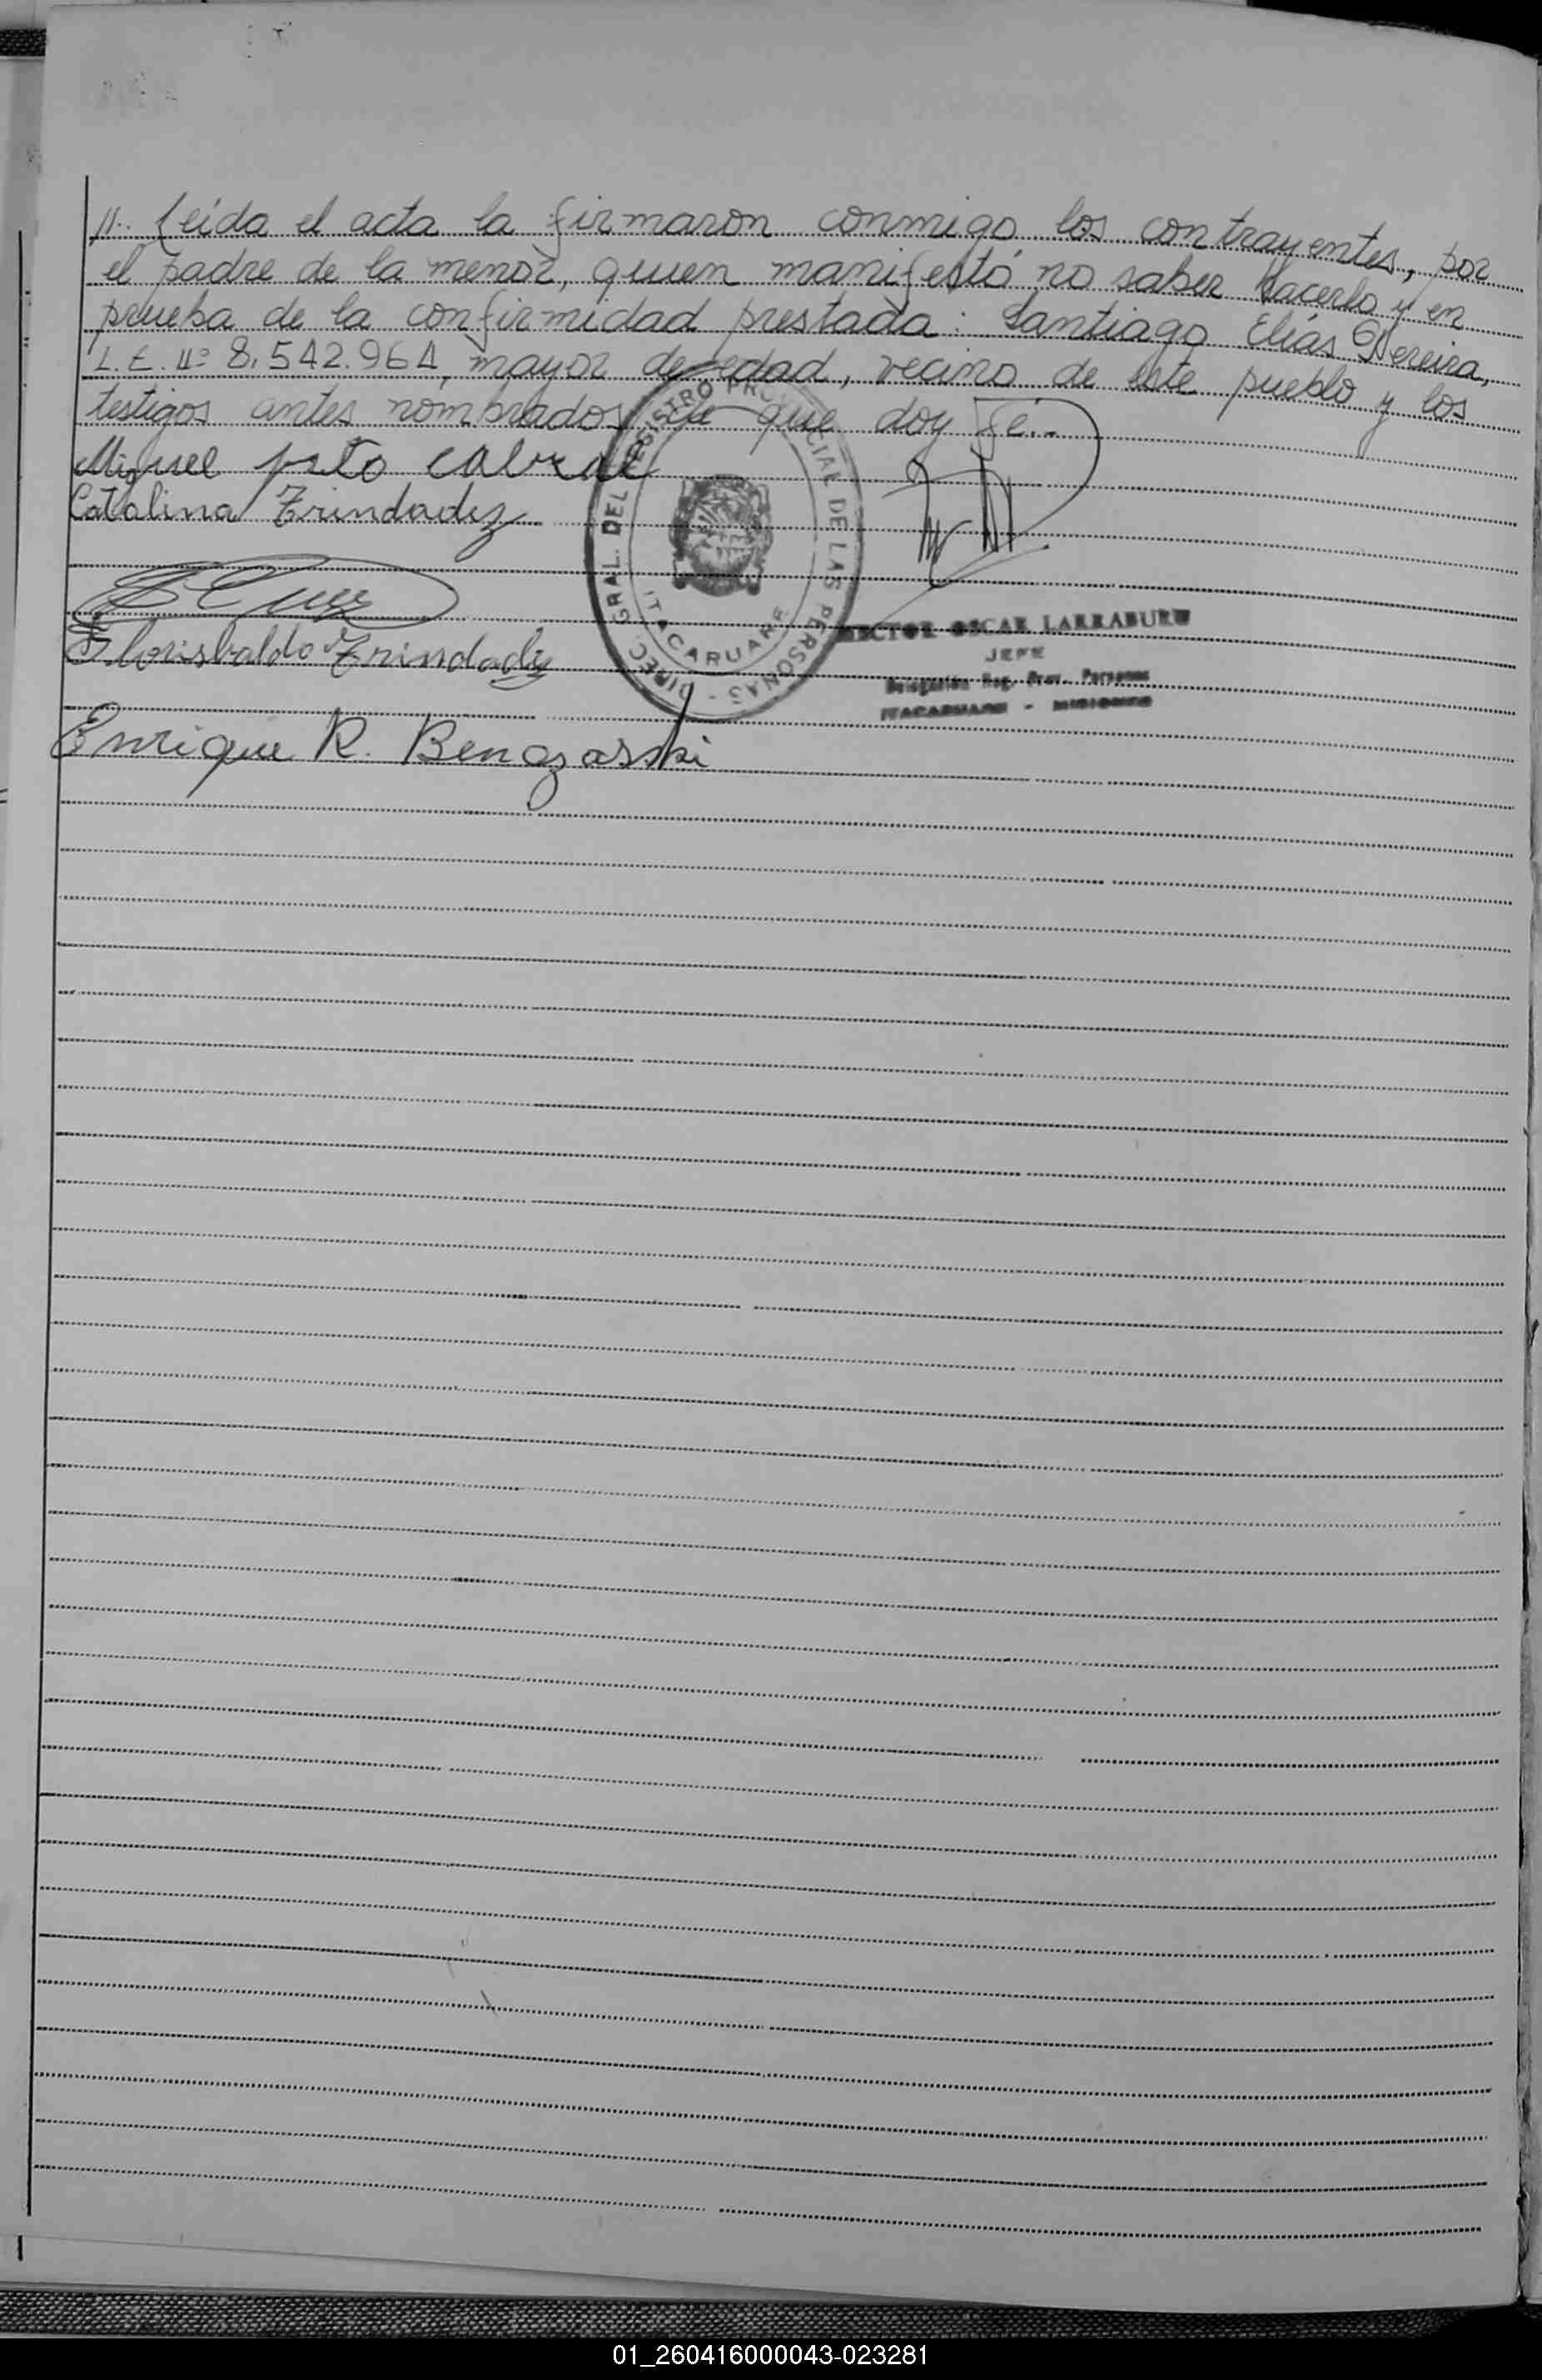 //.. Leída el acta la firmaron conmigo los contrayentes, por
el padre de la menor, quien manifestó no saber Hacerlo y en
prueba de la confirmidad prestada: Santiago Elías Pereira,
L.E. Nº 8.542.964, mayor de edad, vecino de este pueblo y los
testigos antes nombrados de que doy fé..
Miguel Cabral
Catalina Trindadez
Florisbaldo Trindadez
Enrique R. Bengzarski
DIREC. GRAL. DEL REGISTRO PROVINCIAL DE LAS PERSONAS -
ITACARUARE
HECTOR OSCAR LARRABURU
JEFE
Delegación Reg. Prov. Personas
ITACARUARE - MISIONES
01_260416000043-023281